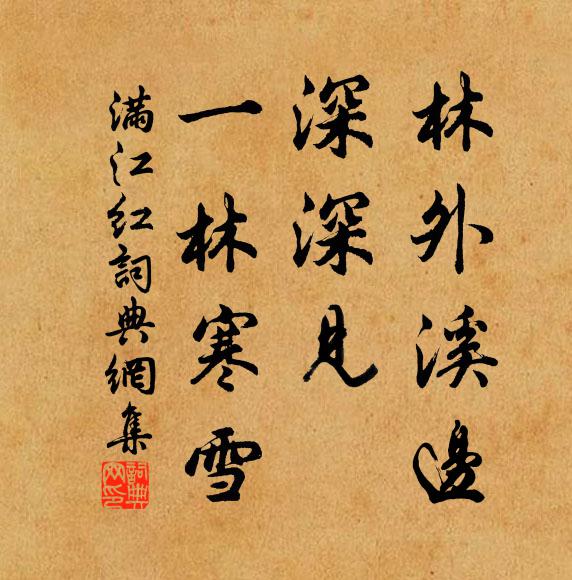 林外溪邊
深深見
一林寒雪
滿江紅詞典網集
詞典网印